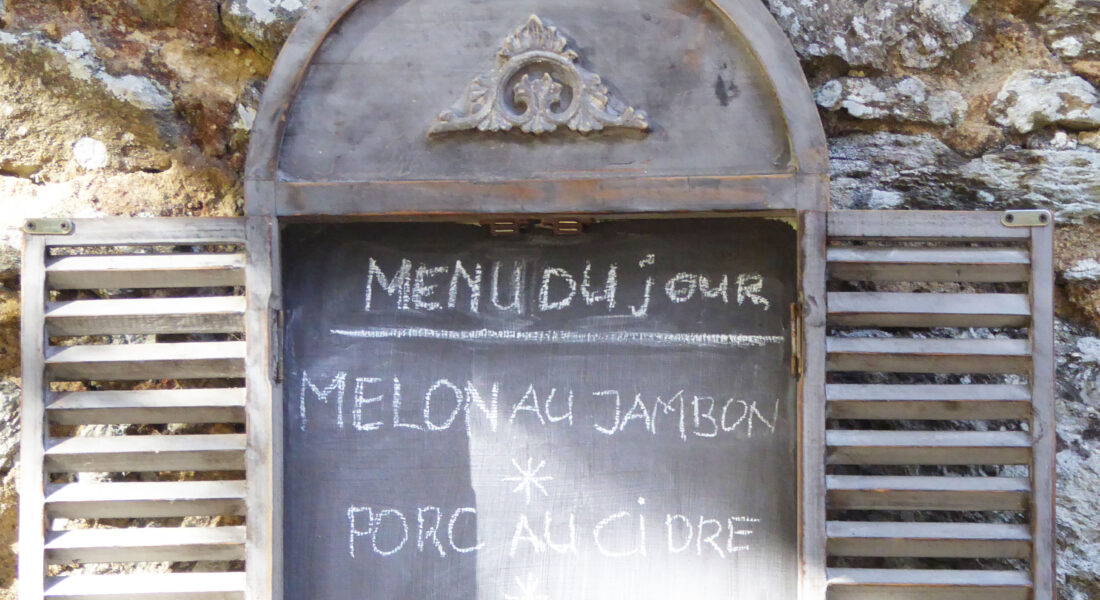 MENU DU jOUR
MELON AU JAMBON
*
PORC AU CiDRE
*